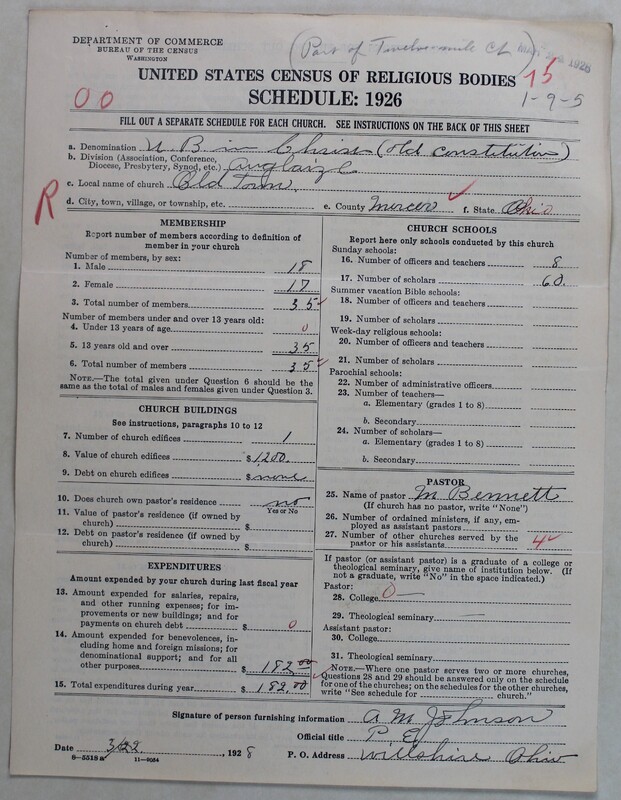 DEPARTMENT OF COMMERCE
BUREAU OF THE CENSUS
WASHINGTON
(Part of Twelve-mile Ct.
1928
UNITED STATES CENSUS OF RELIGIOUS BODIES
15
0 0
SCHEDULE: 1926
1-9-5
FILL OUT A SEPARATE SCHEDULE FOR EACH CHURCH. SEE INSTRUCTIONS ON THE BACK OF THIS SHEET
a. Denomination U. B. in Christ (old constitution)
b. Division (Association, Conference, Diocese, Presbytery, Synod, etc.) Auglaize
c. Local name of church Old Town
R
d. City, town, village, or township, etc. e. County Mercer f. State Ohio
MEMBERSHIP
Report number of members according to definition of member in your church
Number of members, by sex:
1. Male 18
2. Female 17
3. Total number of members 35
Number of members under and over 13 years old:
4. Under 13 years of age 0
5. 13 years old and over 35
6. Total number of members 35
NOTE.—The total given under Question 6 should be the same as the total of males and females given under Question 3.
CHURCH BUILDINGS
See instructions, paragraphs 10 to 12
7. Number of church edifices 1
8. Value of church edifices $1200.
9. Debt on church edifices $ none
10. Does church own pastor's residence no
Yes or No
11. Value of pastor's residence (if owned by church) $
12. Debt on pastor's residence (if owned by church) $
EXPENDITURES
Amount expended by your church during last fiscal year
13. Amount expended for salaries, repairs, and other running expenses; for improvements or new buildings; and for payments on church debt $ 0
14. Amount expended for benevolences, including home and foreign missions; for denominational support; and for all other purposes $ 182.00
15. Total expenditures during year $ 182.00
CHURCH SCHOOLS
Report here only schools conducted by this church
Sunday schools:
16. Number of officers and teachers 8
17. Number of scholars 60.
Summer vacation Bible schools:
18. Number of officers and teachers
19. Number of scholars
Week-day religious schools:
20. Number of officers and teachers
21. Number of scholars
Parochial schools:
22. Number of administrative officers
23. Number of teachers—
a. Elementary (grades 1 to 8)
b. Secondary
24. Number of scholars—
a. Elementary (grades 1 to 8)
b. Secondary
PASTOR
25. Name of pastor M Bennett
(If church has no pastor, write "None")
26. Number of ordained ministers, if any, employed as assistant pastors
27. Number of other churches served by the pastor or his assistants 4
If pastor (or assistant pastor) is a graduate of a college or theological seminary, give name of institution below. (If not a graduate, write "No" in the space indicated.)
Pastor:
28. College 0
29. Theological seminary
Assistant pastor:
30. College
31. Theological seminary
NOTE.—Where one pastor serves two or more churches, Questions 28 and 29 should be answered only on the schedule for one of the churches; on the schedules for the other churches, write "See schedule for church."
Signature of person furnishing information A M Johnson
Official title P. E.
Date 3/22, 1928 P. O. Address Willshire Ohio
8-5518a 11-9064